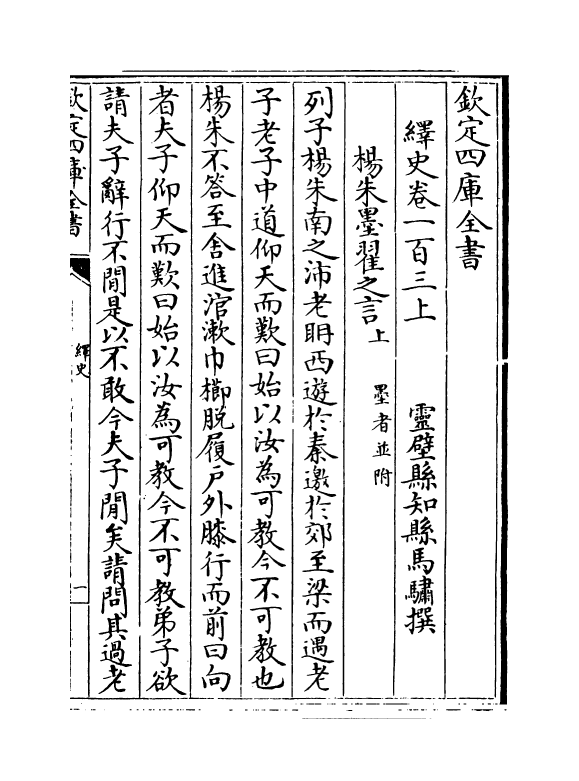 欽定四庫全書
繹史卷一百三上
靈壁縣知縣馬驌撰
楊朱墨翟之言上 墨者並附
列子楊朱南之沛老聃西遊於秦邀於郊至梁而遇老
子老子中道仰天而歎曰始以汝為可教今不可教也
楊朱不答至舍進涫漱巾櫛脫履戶外膝行而前曰向
者夫子仰天而歎曰始以汝為可教今不可教弟子欲
請夫子辭行不閒是以不敢今夫子閒矣請問其過老
欽定四庫全書
繹史
一